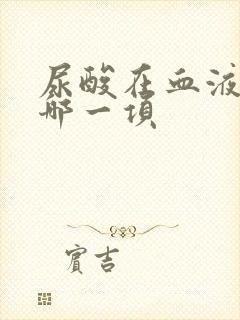 尿酸在血液
哪一项
賓吉